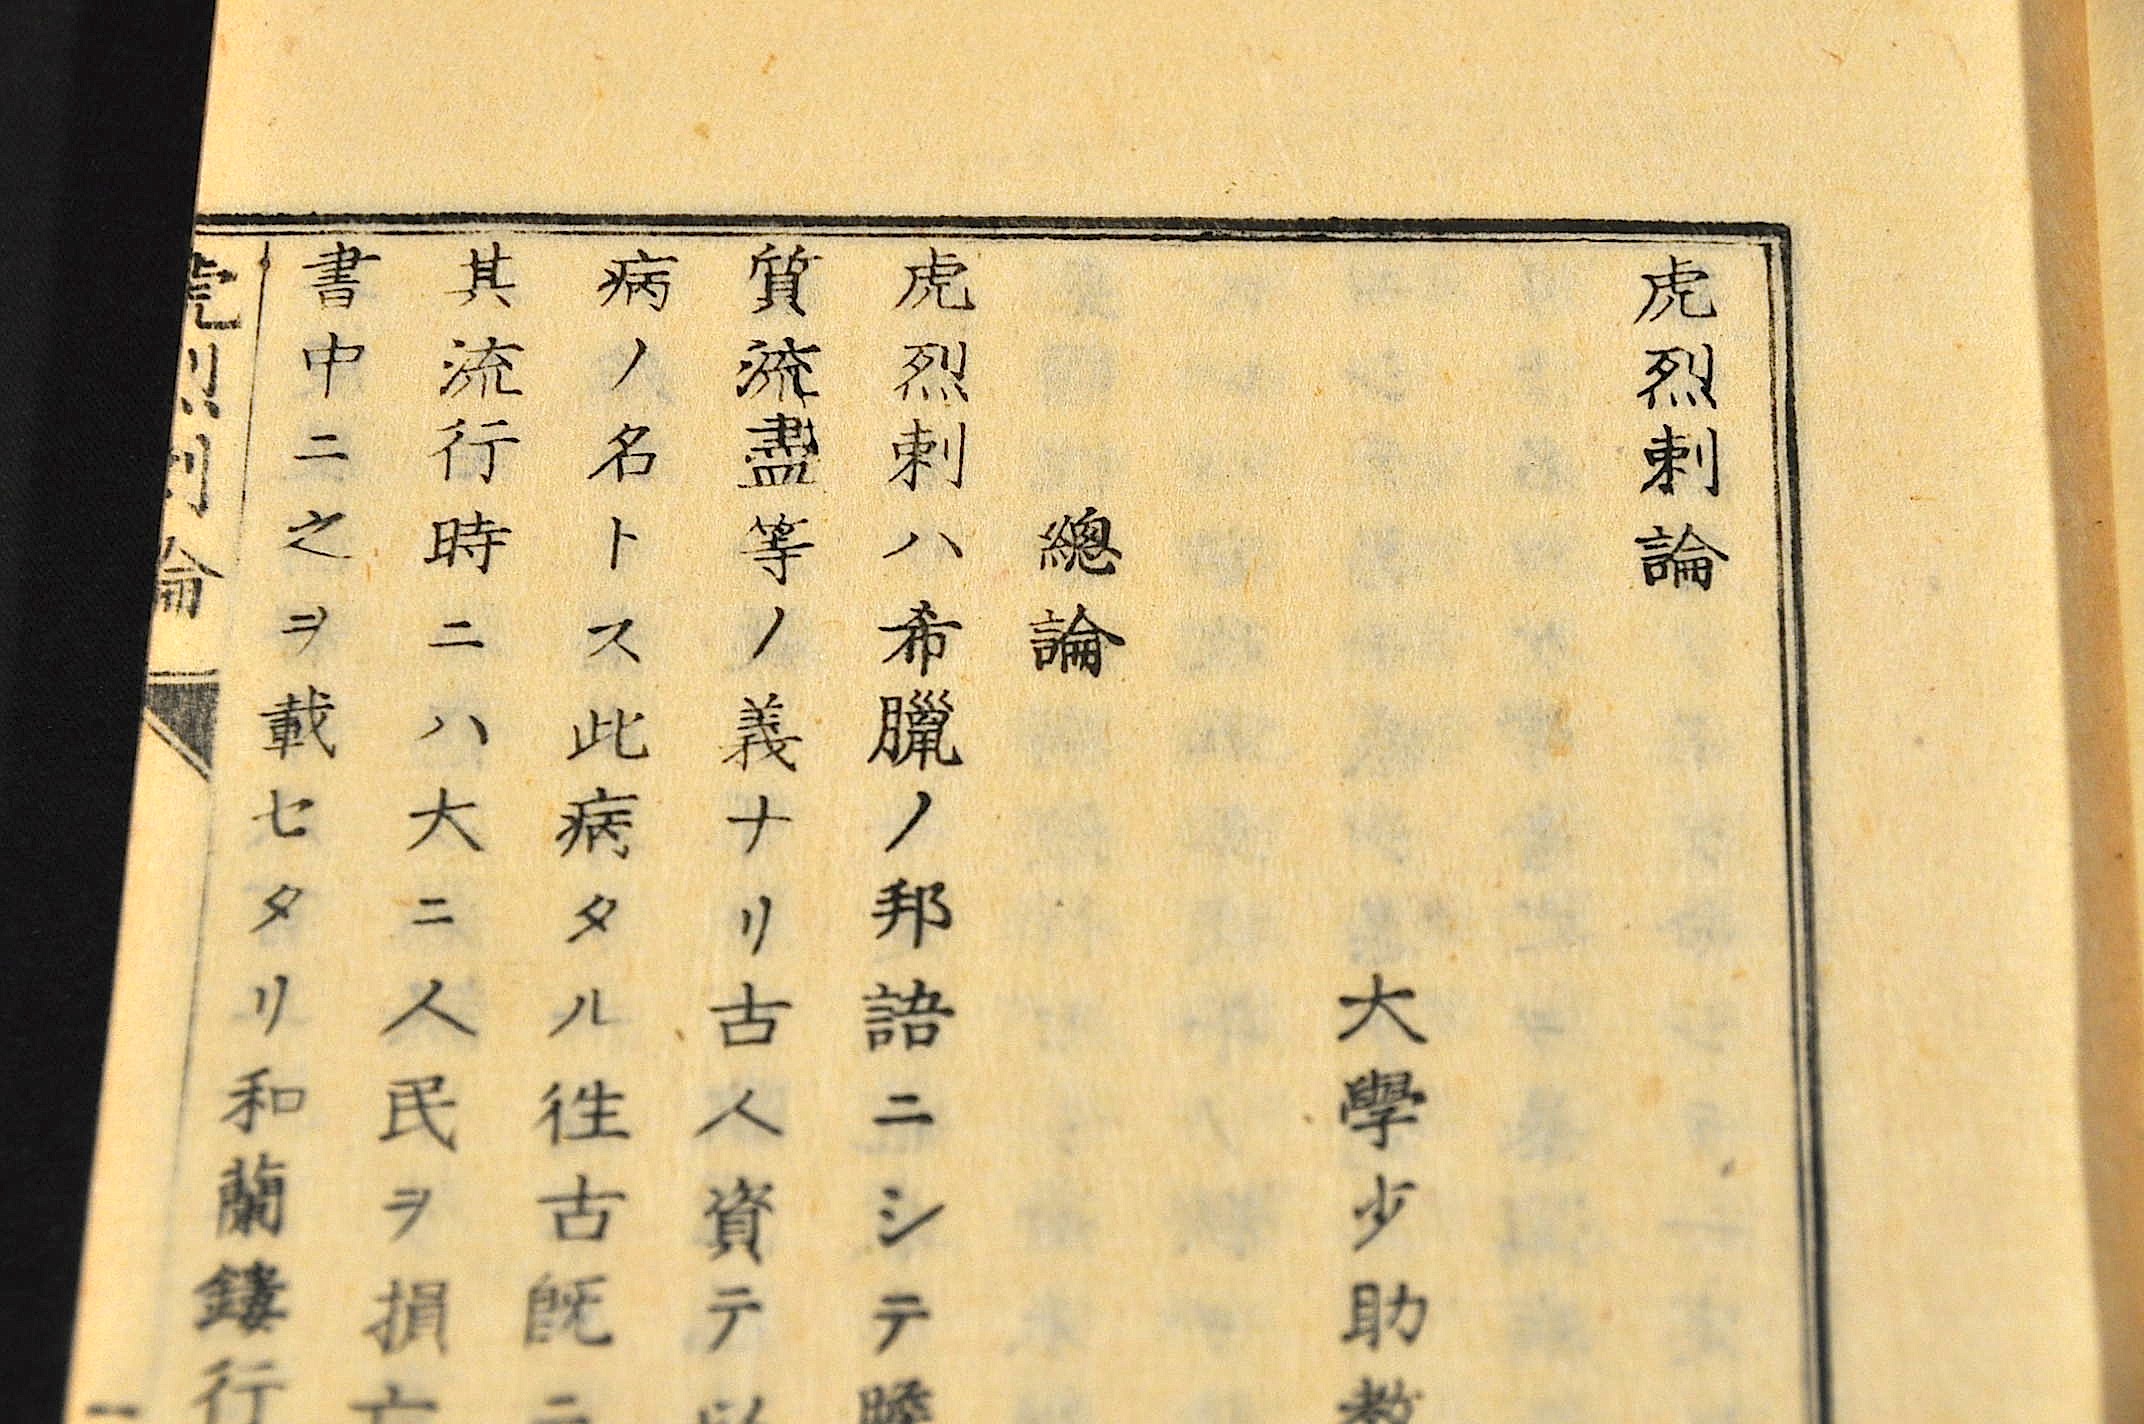 虎烈剌論
大學少助教
總論
虎烈剌ハ希臘ノ邦語ニシテ膽
質流盡等ノ義ナリ古人資テ以
病ノ名トス此病タル徃古旣ニ
其流行時ニハ大ニ人民ヲ損亡
書中ニ之ヲ載セタリ和蘭鏤行
虎烈剌論